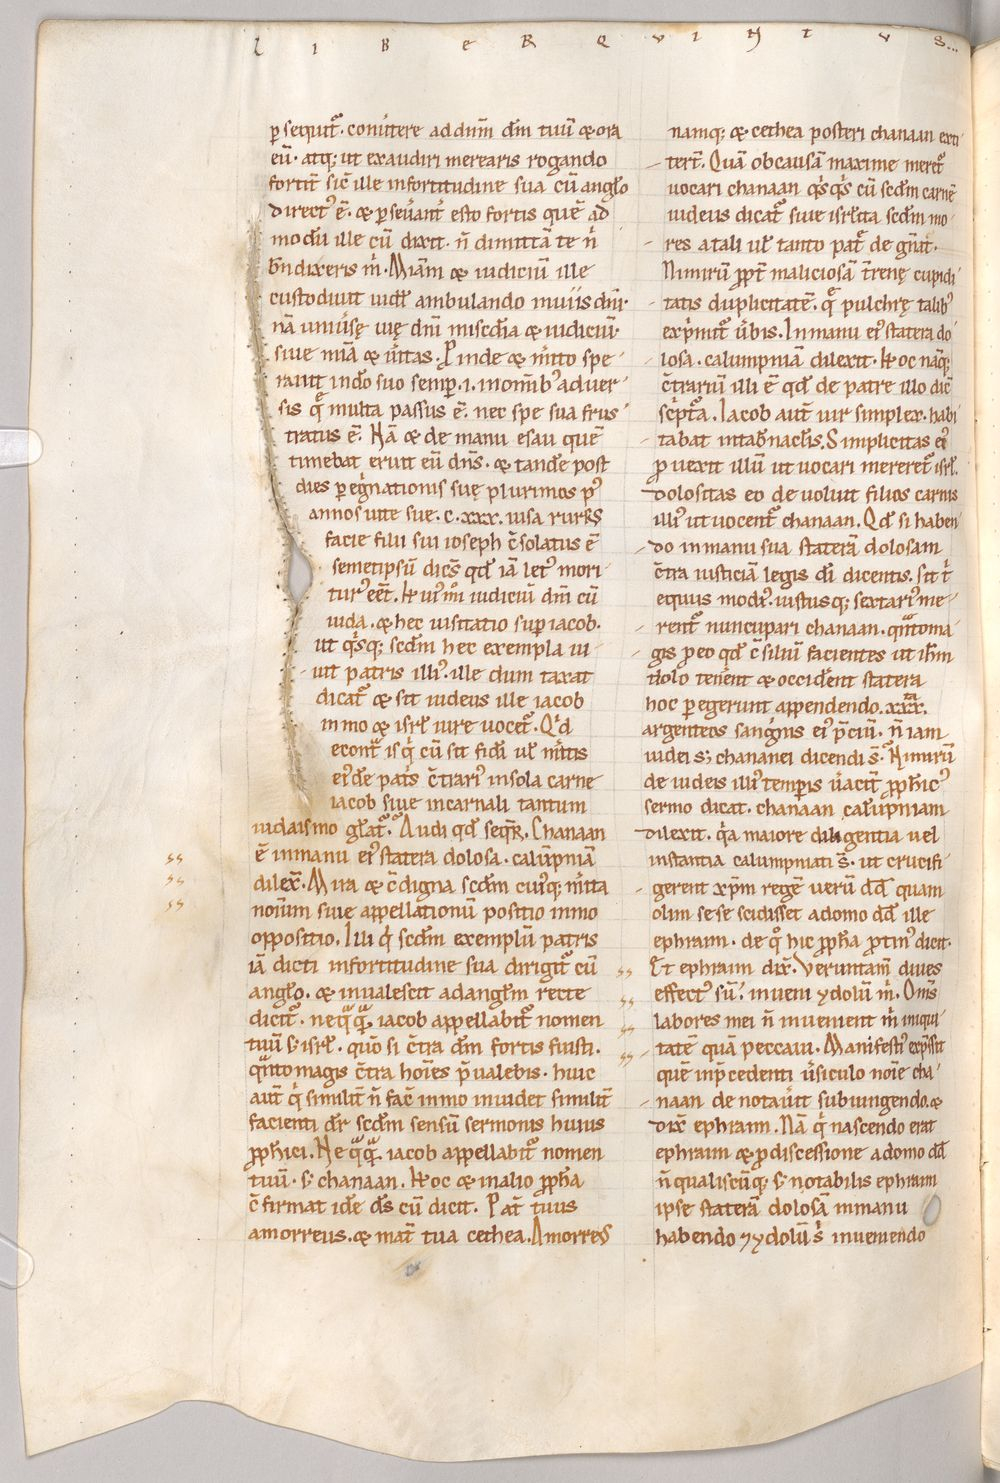 L I B E R Q V I N T V S...
p̱sequit᷑. conútere ad dn̄m dm̄ tuū & ora
eū. atq; ut exaudiri merearis rogando
fortit̄ sic̄ ille in fortitudine sua cū anglo
direct' ē. & p̱seúant' esto fortis quē ad
modū ille cū dixit. n̄ dimittā te n̄
bn̄dixeris m̄. Miām & iudiciū ille
custodiuit iudē ambulando in uiis dn̄i.
nā uniúsę uię dn̄i mis̄cdia & iudiciū.
siue miā & úitas. Pinde & m̄ito spe
rauit in dō suo semp̱ .i. in om̄ib' aduer
sis q̄ multa passus ē. nec spe sua frus
tratus ē. Nā & de manu esau quē
timebat eruit eū dn̄s. & tandē post
dies peg̓nationis suę plurimos p'
annos uite sue .c.xxx. uisa rursus
facie filii sui ioseph c̄solatus ē
semetipsū dicēs qd̄ iā let' mori
tur' eēt. H ui'm̊i iudiciū dn̄i cū
iuda. & hec uisitatio sup̱ iacob.
ut qs̓q; scd̄m hec exempla ui
uit patris illi'. ille dum taxat
dicat᷑ & sit iudeus ille iacob
immo & isrl̄ iure uocet᷑. Qd̓
econt̄ is q̓ cū sit fidī ul̄ m̄itis
ei'dē pat's c̄trari' in sola carne
iacob siue in carnali tantum
iudaismo gl̄at᷑. Audi qd̄ seq̄r. Chanaan
ē in manu ei' statera dolosa. calūpniā
dilex̄. Mira & c̄digna scd̄m cui'q; m̄ita
noīum siue appellationū positio immo
oppositio. Illi q̓ scd̄m exemplū patris
iā dicti in fortitudine sua dirigit᷑ cū
anglo. & inualescit ad anglm̄ recte
dicit᷑. neqq̄q̄ iacob appellabit᷑ nomen
tuū s; isrl̄. qm̄ si c̄tra dm̄ fortis fuisti.
q̓nto magis c̄tra hoīes p̄ualebis. huic
aut̄ q̓ similit̄ n̄ fac̄ immo inuidet similit̄
facienti dr̄ scd̄m sensū sermonis huius
pph̄ici. Neqq̄q̄ iacob appellabit᷑ nomen
tuū. s; chanaan. Hoc & in alio pph̄a
c̄firmat idē ds̄ cū dicit. Pat̄ tuus
amorreus. & mat̄ tua cethea. Amorreus
namq; & cethea posteri chanaan exti
tert̄. Quā ob causā maxime meret᷑
uocari chanaan qs̓qs̓ cū scd̄m carnē
iudeus dicat᷑ siue isrl̄ita scd̄m mo
res a tali ul̄ tanto pat̄ de gn̄at᷑.
Nimirū ppt̄ maliciosā t̄renę cupidi
tatis duplicitatē. q̄ pulchrę talib'
exp̓mit᷑ úbis. In manu ei' statera do
losa. calumpniā dilexit. Hoc nāq;
c̄trariū illi ē qd̄ de patre illo dic̄
sc̓pt᷑a. Iacob aut̄ uir simplex. habi
tabat in tabn̄aclis. Simplicitas ei'
puexit illū ut uocari mereret᷑ isrl̄.
dolositas eo deuoluit filios carnis
illi' ut uocent᷑ chanaan. Qd̄ si haben
do in manu sua staterā dolosam
c̄tra iusticiam legis dī dicentis. sit t̓
equus modi'. iustusq; sextari' me
rent᷑ nuncupari chanaan. q̓nto ma
gis p eo qd̄ c̄siliū facientes ut ih̄m
dolo tenēnt & occidēnt statera
hoc pegerunt appendendo .xxx.ta
argenteos sanguinis ei' p̄ciū. n̄ iam
iudei s; chananei dicendi s̄. Nimirū
de iudeis illi' temp̱is úacit̄ pph̄ic'
sermo dicat. chanaan calūpniam
dilexit. q̓a maiore diligentia uel
instantia calumpniati s̄. ut crucifi
gerent xp̄m regē uerū dd̄ quam
olim sese scidisset a domo dd̄ ille
ephraim. de q̊ hic pph̄a ptin' dicit.
Et ephraim dix̄. Veruntam̄ diues
effect' sū. inueni ydolū m̄. Om̄s
labores mei n̄ inuenient m̄ iniqui
tatē quā peccaui. Manifesti' exp̓ssit
quē in p̄cedenti úsiculo noīe cha
naan denotaúit subiungendo. &
dix̄ ephraim. Nā q̓ nascendo erat
ephraim & p discessione a domo dd̄
n̄ qualiscūq; s; notabilis ephraim
ipse staterā dolosā in manu
habendo 7 ydolū s̓ inueniendo